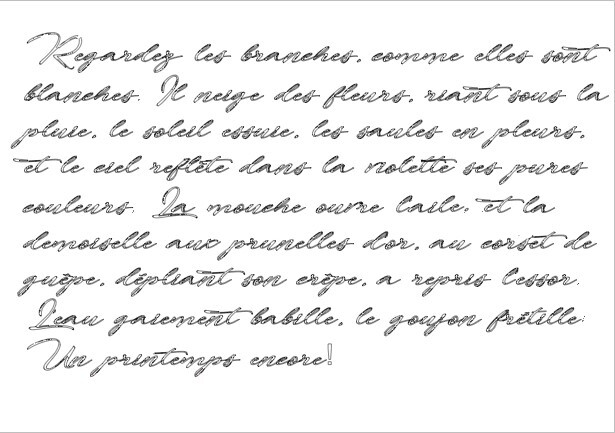 Regardez les branches, comme elles sont
blanches. Il neige des fleurs, riant sous la
pluie, le soleil essuie, les saules en pleurs,
et le ciel reflète dans la violette ses pures
couleurs. La mouche ouvre l'aile, et la
demoiselle aux prunelles d'or, au corset de
guêpe, dépliant son crêpe, a repris l'essor.
L'eau gaiement babille, le goujon frétille:
Un printemps encore!